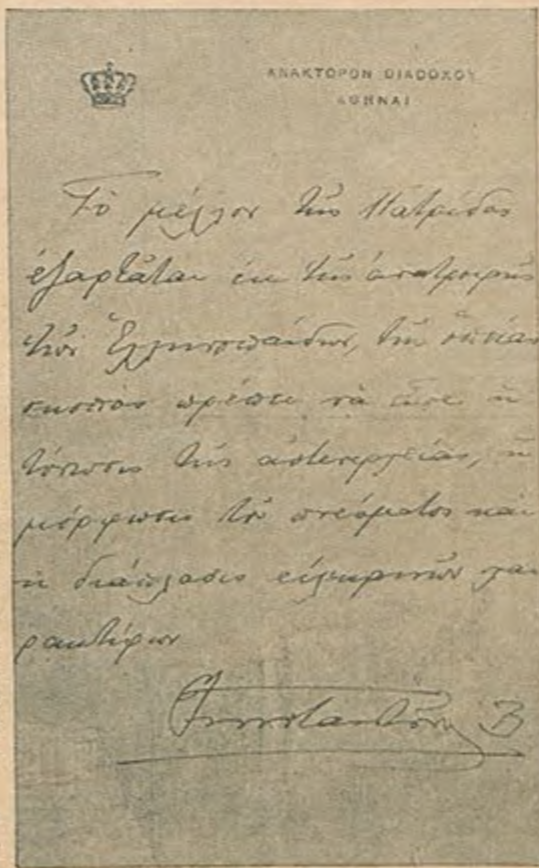 ΑΝΑΚΤΟΡΟΝ ΔΙΑΔΟΧΟΥ
ΑΘΗΝΑΙ
Τὸ μέλλον τῆς Πατρίδος
ἐξαρτᾶται ἐκ τῆς ἀνατροφῆς
τῶν Ἑλληνοπαίδων, τῆς ὁποίας
σκοπὸς πρέπει νὰ εἶνε ἡ
τόνωσις τῆς αὐτενεργείας, ἡ
μόρφωσις τοῦ πνεύματος καὶ
ἡ διάπλασις εἰλικρινῶν χα
ρακτήρων
Κωνσταντῖνος Β